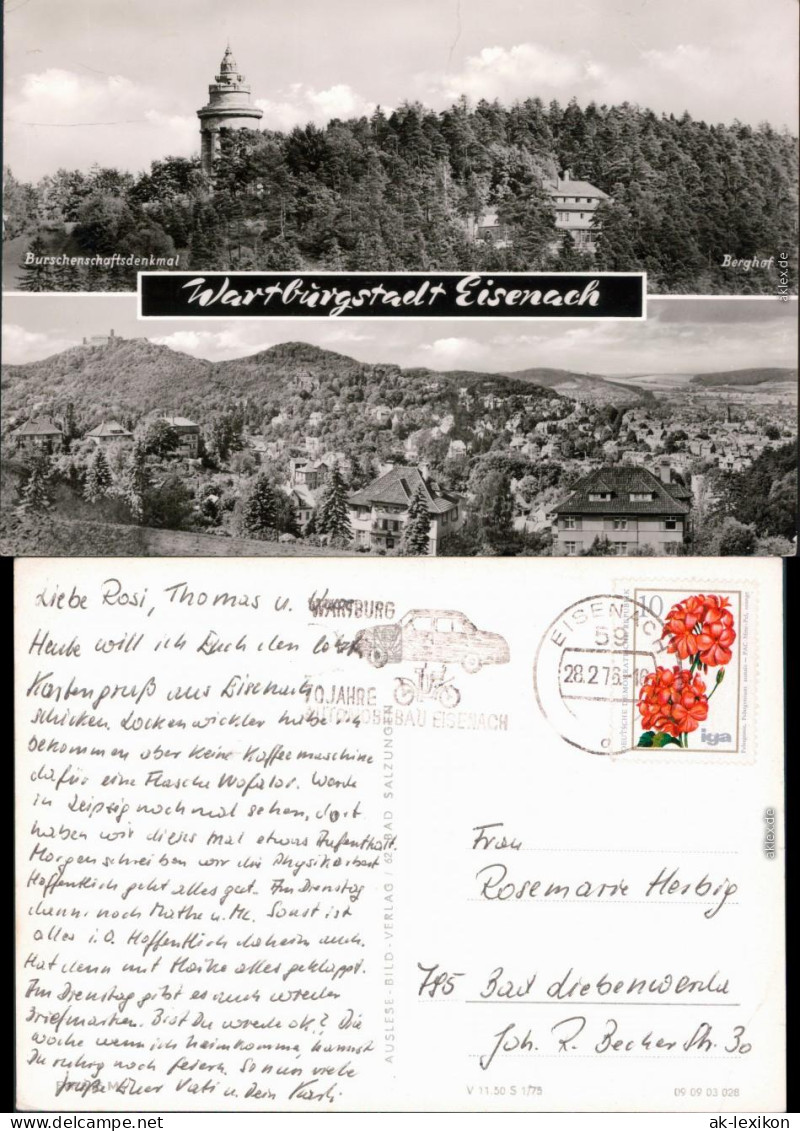 Burschenschaftsdenkmal
Berghof
Wartburgstadt Eisenach
Liebe Rosi, Thomas u.
Heute will ich Euch den letzt
Kartengruß aus Eisenach
schicken. Lockenwickler habe ich
bekommen aber keine Kaffeemaschine
dafür eine Flasche Wofalor. Werde
in Leipzig noch mal sehen, dort
haben wir dieses mal etwas Aufenthalt.
Morgen schreiben wir die Physikarbeit
Hoffentlich geht alles gut. Am Dienstag
dann noch Mathe u. ML. Sonst ist
alles i.O. Hoffentlich daheim auch.
Hat denn mit Heike alles geklappt.
Am Dienstag gibt es auch wieder
Briefmarken. Bist Du wieder ok.? Die
Woche wenn ich heimkomme, kannst
Du ruhig noch feiern. So nun viele
Grüße Euer Vati u. Dein Karli
WARTBURG
70 JAHRE
AUTOMOBILBAU EISENACH
EISENACH
59
28.2.76
10
DEUTSCHE DEMOKRATISCHE REPUBLIK
iga
AUSLESE-BILD-VERLAG / 62 BAD SALZUNGEN
Frau
Rosemarie Herbig
795 Bad Liebenwerda
Joh. R. Becher Str. 30
V 11.50 S 1/75
09 09 03 028
aklexikon.de
aklexikon.de
ak-lexikon.com